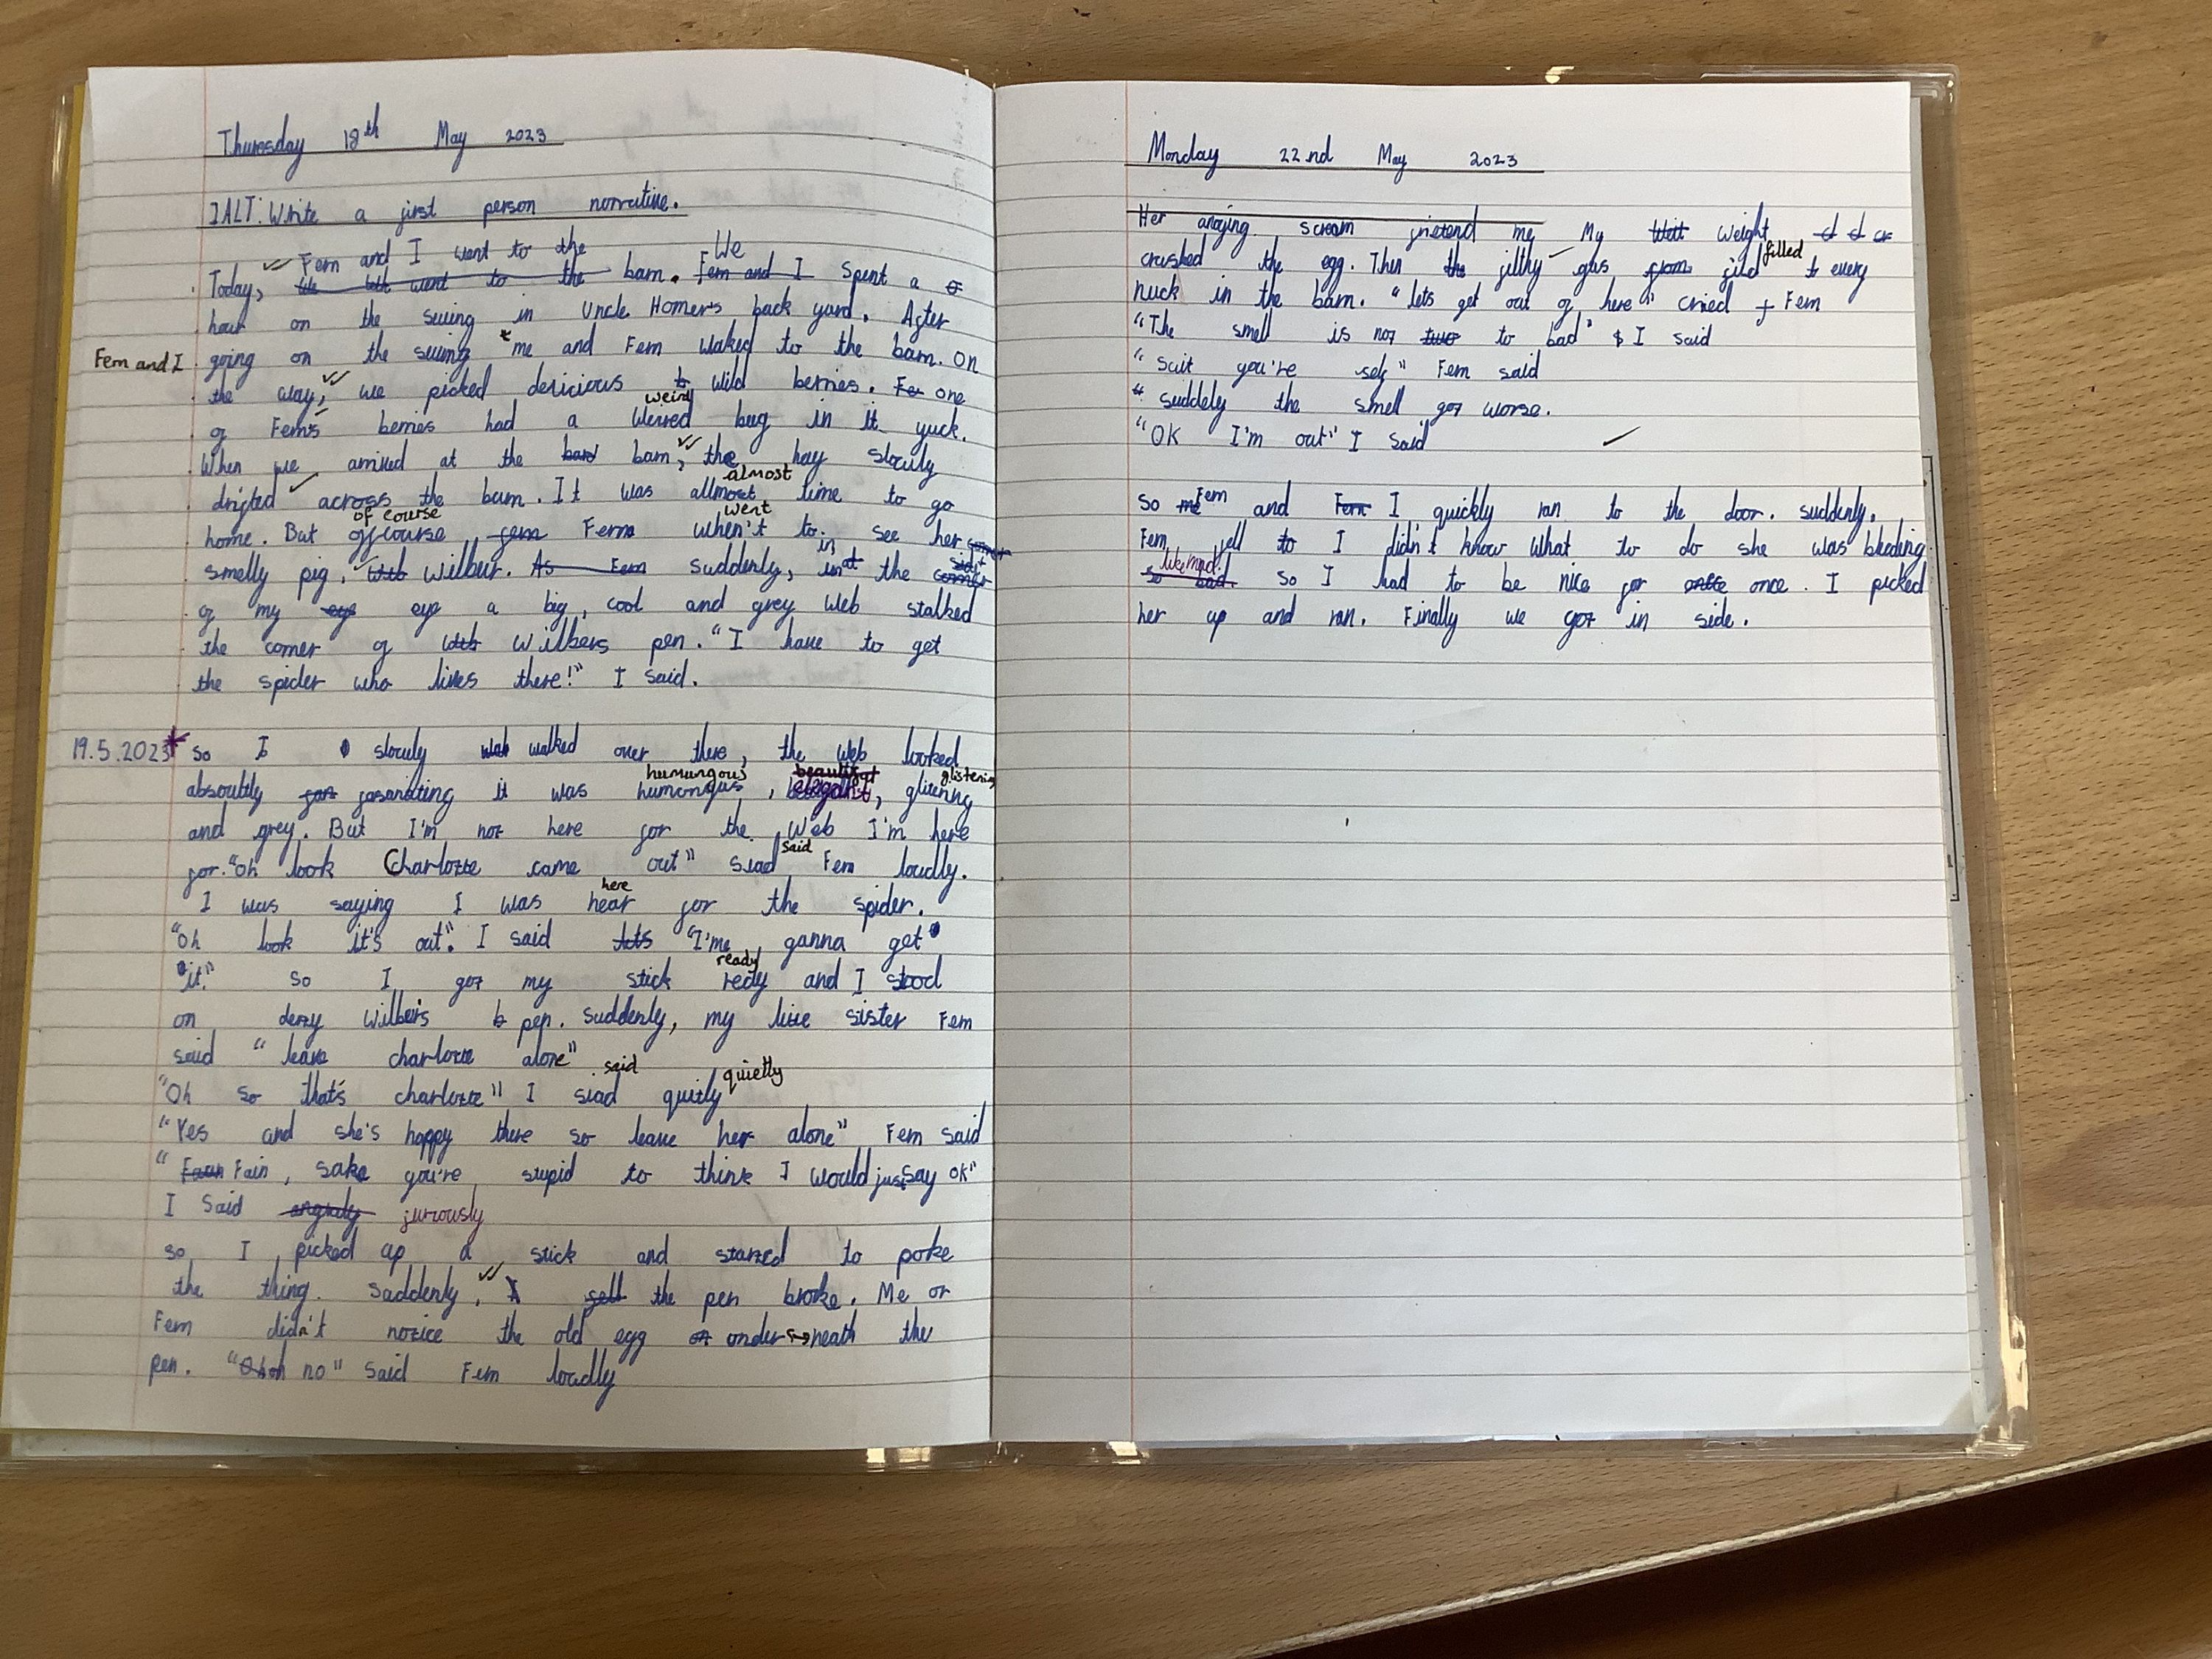 Thuresday 18th May 2023
IALT: Write a first person norrative.
Fern and I went to the We
Today, We went to the barn. Fern and I Spent a
hour on the swing in Uncle Homer's back yard. After
Fern and I going on the swing me and Fern walked to the barn. On
the way, we picked delicious wild berries. Fer one
weird
of Fern's berries had a weired bug in it yuck.
When we arrived at the barn, the hay slowly
almost
drifted across the barn. It was allmost time to go
of course went
home. But offcourse Fern when't to see her
in
smelly pig, Wilbur. As Fern suddenly, in at the corner
of my eye a big, cool and grey web stalked
the corner of Wilbers pen. "I have to get
the spider who lives there!" I said.
19.5.2023 so I slowly walked over there, the web looked
humungous beautiful glistening
absoultly fasanating it was humongus, elegant, glitering
and grey. But I'm not here for the web I'm here
said
for. "oh look Charlotte came out" siad Fern loudly.
here
I was saying I was hear for the spider.
"oh look it's out". I said "I'me ganna get
ready
it." so I got my stick redy and I stood
on Wilbers pen. Suddenly, my little sister Fern
said "leave charlotte alone"
said quietly
"Oh so that's charlotte" I siad quitly
"Yes and she's happy there so leave her alone" Fern said
" Fain, sake you're stupid to think I would just say OK"
I said angraly furously
so I picked up a stick and started to poke
the thing. Suddenly, I fell the pen broke. Me or
Fern didn't notice the old egg onder neath the
pen. "Ohoh no" said Fern loudly
Monday 22nd May 2023
Her anoying scream fritend me My weight
filled
crushed the egg. Then the filthy gas from fild to every
nuck in the barn. "lets get out of here" cried Fern
"The smell is not two to bad" I said
"suit you're self" Fern said
suddely the smell got worse.
"OK I'm out" I said
Fern
so me and Fern I quickly ran to the door. suddenly,
Fern fell to I didn't know what to do she was bleding
like mad!
so bad. so I had to be nice for once. I picked
her up and ran. Finally we got in side.